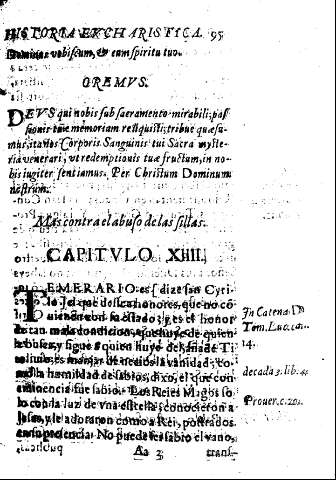 HISTORIA EVCHARISTICA. 95
Dominus vobiscum, & cum spiritu tuo.
OREMVS.
DEVS qui nobis sub sacramento mirabili, pas
sionis tuæ memoriam reliquisti; tribue quæsu-
mus, ita nos Corporis Sanguinis tui Sacra myste-
ria venerari, vt redemptionis tuæ fructum, in no-
bis iugiter sentiamus. Per Christum Dominum
nostrum.
Mas contra el abuso de las sillas.
CAPITVLO XIIII.
TEMERARIO es ( dize san Cyri-
lo ) el que dessea honores, que no có
vienen con su estado: y es el honor
de tan mala condicion, que huye de quien
le busca, y sigue a quien huye del.
es manjar de necios la vanidad, co-
mo la humildad de sabios, dixo, el que con
eminencia fue sabio. Los Reies Magos so
lo con la luz de vna estrella conocieron a
Iesus, y le adoraron como a Rei, postrados
en su presencia. No puede ser sabio el vano,
Aa 3 trans-
In Catena D
Tom. Luc. ca.
14.
decada 3. lib. 4.
Prouer. c. 20.